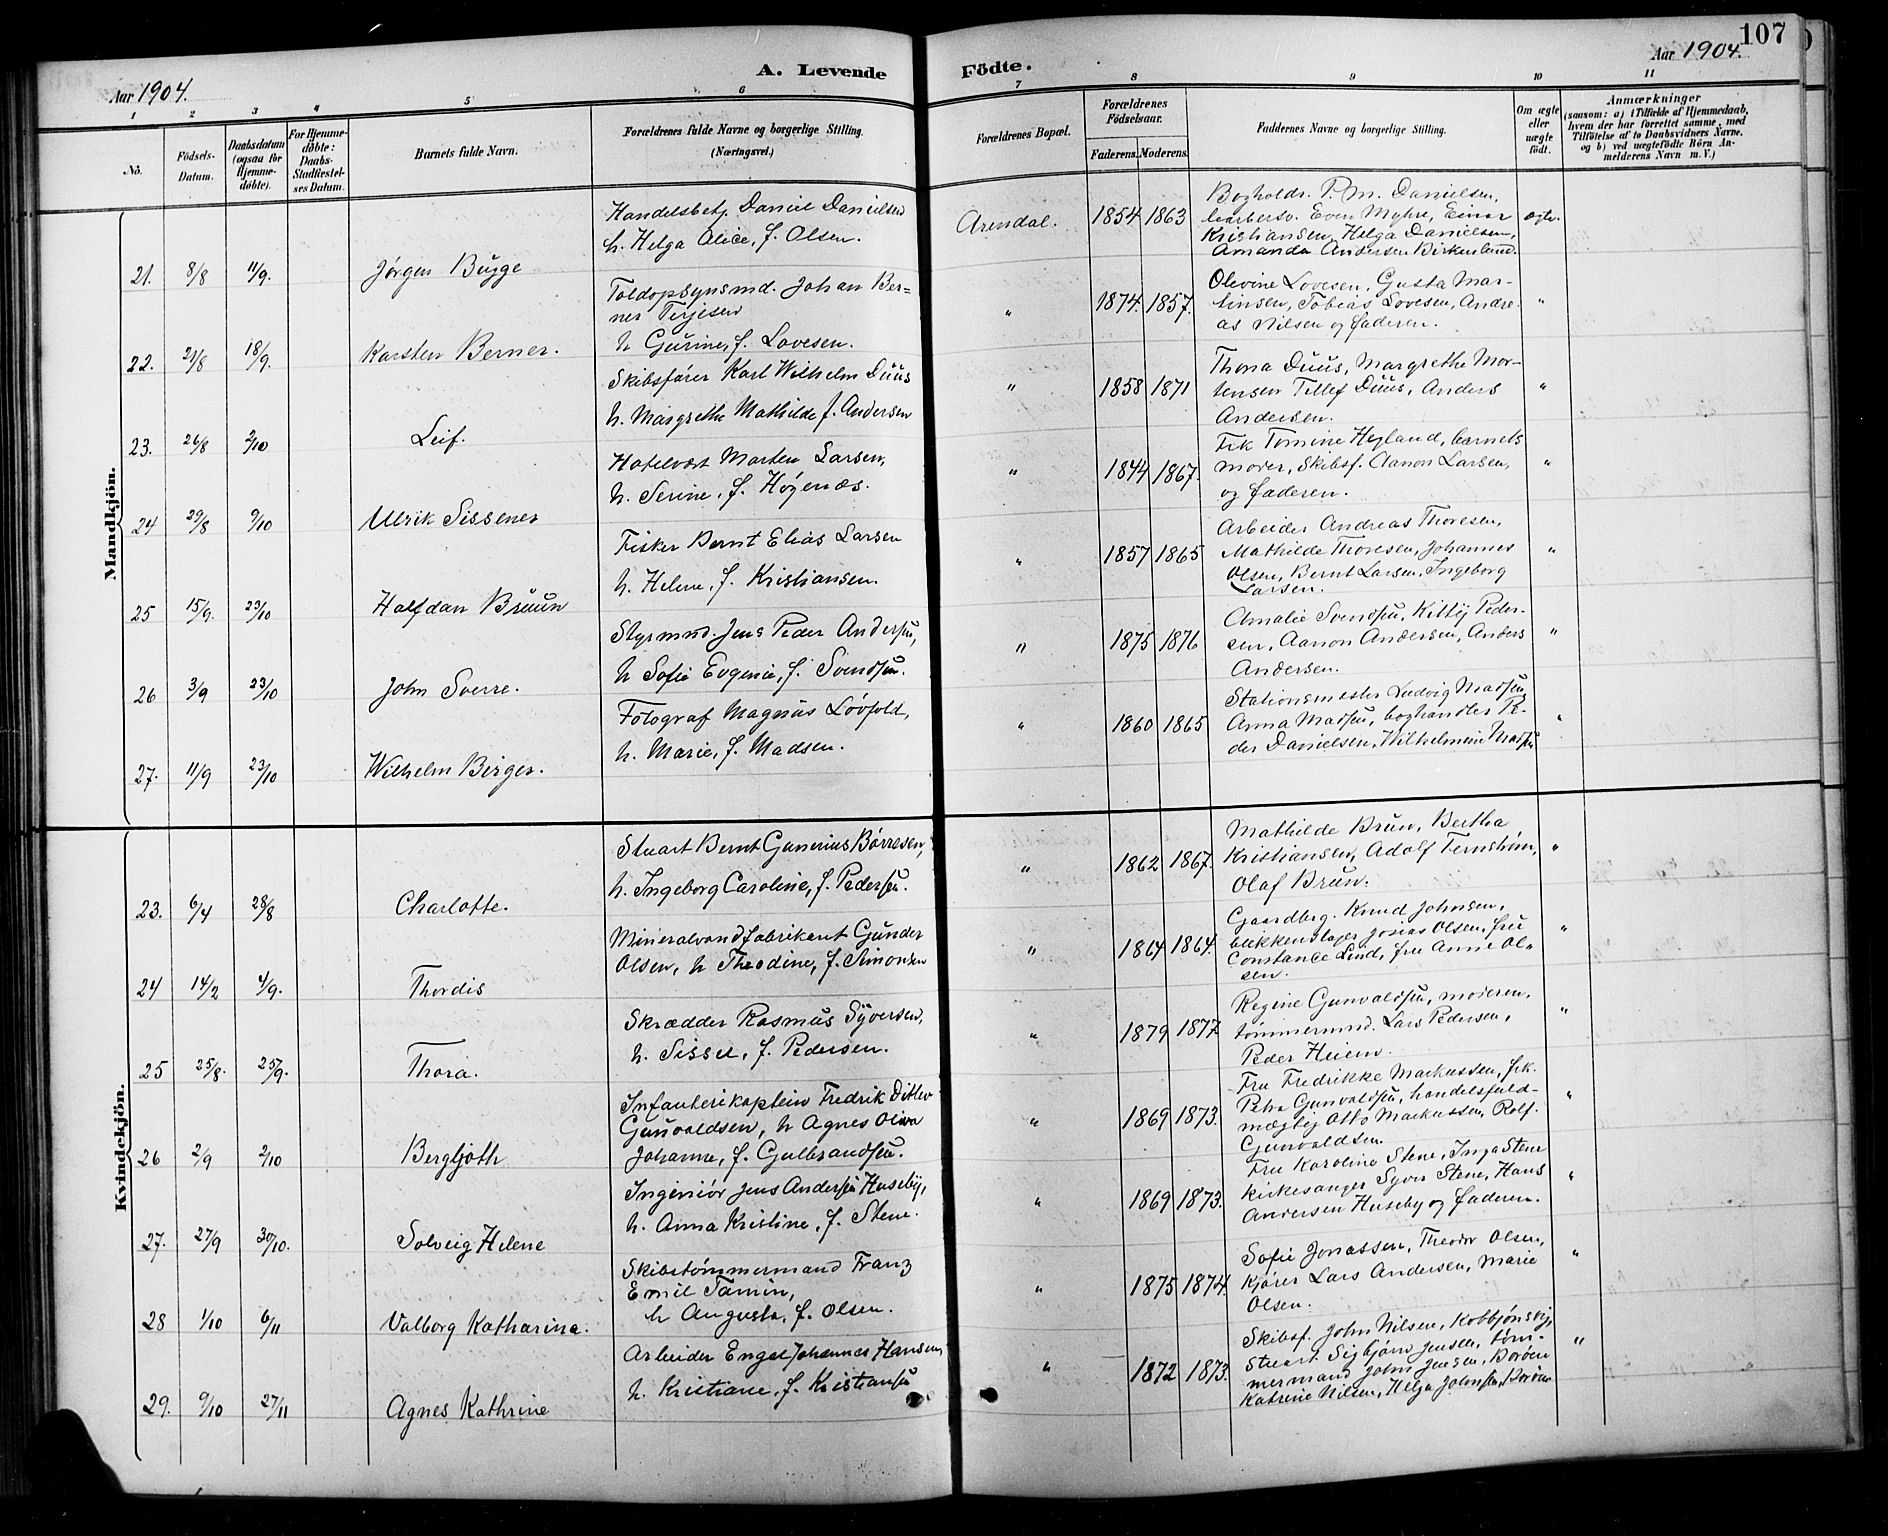 107
Aar 1904.
A. Levende Födte.
Aar 1904.
1 2 3 4 5 6 7 8 9 10 11
No.
Födsels-Datum.
Daabsdatum (ogsaa for Hjemme-döbte).
For Hjemme-döbte: Daabs-Stadfæstel-ses Datum.
Barnets fulde Navn.
Forældrenes fulde Navne og borgerlige Stilling.
(Næringsvei.)
Forældrenes Bopæl.
Forældrenes Födselsaar.
Faderens. Moderens.
Faddernes Navne og borgerlige Stilling.
Om ægte eller uægte födt.
Anmærkninger
(saasom: a) i Tilfælde af Hjemmedaab,
hvem der har forrettet samme, med
Tilföielse af to Daabsvidners Navne,
og b) ved uægtefödte Börn An-
melderens Navn m. V.)
Mandkjön.
21. 8/8 11/9. Jørgen Bugge
Handelsbetj. Daniel Danielsen
h. Helga Alice, f. Olsen.
Arendal. 1854 1863
Bogholdr. P. M. Danielsen,
Even Myhre, Einar
Kristiansen, Helga Danielsen,
Amanda Andersen Birkenlund.
ægte.
22. 21/8 18/9. Karsten Berner.
Toldopsynsmd. Johan Ber=
ner Terjesen
h Gurine, f. Lovesen.
" 1874. 1857.
Olivine Lovesen, Gusta Mar-
tinsen, Tobias Lovesen, Andre-
as Nilsen og faderen.
"
23. 26/8 2/10 Leif.
Skibsfører Karl Wilhelm Duus
h. Margrethe Mathilde f. Andersen
" 1858 1871
Thona Duus, Margrethe Mor-
tensen Tellef Duus, Anders
Andersen.
"
24 29/8 9/10 Ulrik Sissener
Hotelvært Morten Larsen,
h. Serine, f. Høgenæs.
" 1844 1867.
Frk Tomine Hegland, barnets
moder, Skibsf. Aanon Larsen,
og faderen.
"
25 15/9. 23/10 Halfdan Bruun
Fisker Bernt Elias Larsen
h. Helene, f. Kristiansen.
" 1857 1865
Arbeider Andreas Thoresen,
Mathilde Thoresen, Johannes
Olsen, Bernt Larsen, Ingeborg
Larsen.
"
26 3/9 23/10 John Sverre.
Styrmnd. Jens Peder Andersen,
h Sofie Evgenie, f. Svendsen.
" 1875 1876
Amalie Svendsen, Kitty Peder-
sen, Aanon Andersen, Anders
Andersen.
"
27. 11/9 23/10 Wilhelm Birger.
Fotograf Magnus Løvfold,
h. Marie, f. Madsen.
" 1860 1865
Stationsmester Ludvig Madsen
Anna Madsen, boghandler P.
der Danielsen, Wilhelmine Madsen
"
Kvindekjön.
23. 6/4 28/8 Charlotte.
Stuart Bernt Gunerius Børresen,
h. Ingeborg Caroline, f. Pedersen.
" 1862 1867.
Mathilde Brun, Bertha
Kristiansen, Adolf Ternstrøm,
Olaf Brun.
"
24 14/2 4/9. Thordis
Mineralvandfabrikant Gunder
Olsen, h Theodine, f. Simonsen
" 1864 1864.
Gaardbg. Knud Johnsen,
blikkenslager Josias Olsen, fru
Constance Lind, fru Anne Ol-
sen.
"
25 25/8. 25/9. Thora.
Skrædder Rasmus Syversen,
h. Sisser, f. Pedersen.
" 1879 1877
Regine Gunvaldsen, moderen,
tømmermnd. Lars Pedersen,
Peder Heiem.
"
26 2/9 2/10 Bergljoth
Infanterikaptein Fredrik Ditlev
Gunvaldsen, h Agnes Oliva
Johanne, f. Gulbrandsen.
" 1869 1873.
Fru Fredrikke Markussen, frk.
Petra Gunvaldsen, handelsfuld-
mægtig Otto Markussen, Rolf
Gunvaldsen.
"
27. 27/9 30/10. Solveig Helene
Ingeniör Jens Andersen Huseby,
h. Anna Kristine, f. Stene.
" 1869 1873.
Fru Karoline Stene, Inga Stene
kirkesanger Syver Stene, Hans
Andersen Huseby og faderen.
"
28 1/10 6/11 Valborg Katharina.
Skibstømmermand Franz
Emil Tamin,
h Augusta, f. Olsen.
" 1875 1874.
Sofie Jonassen, Theodor Olsen,
Kjører Lars Andersen, Marie
Olsen.
"
29. 9/10 27/11 Agnes Kathrine
Arbeider Engel Johannes Hansen,
h. Kristiane, f. Kristiansen
" 1872 1873.
Skibsf. John Nilsen, Kolbjønsvig,
Stuart Sigbjørn Jensen, tøm-
mermand John Jensen, Borøen
Katrine Nilsen, Helga Johnsen, Borøen
"